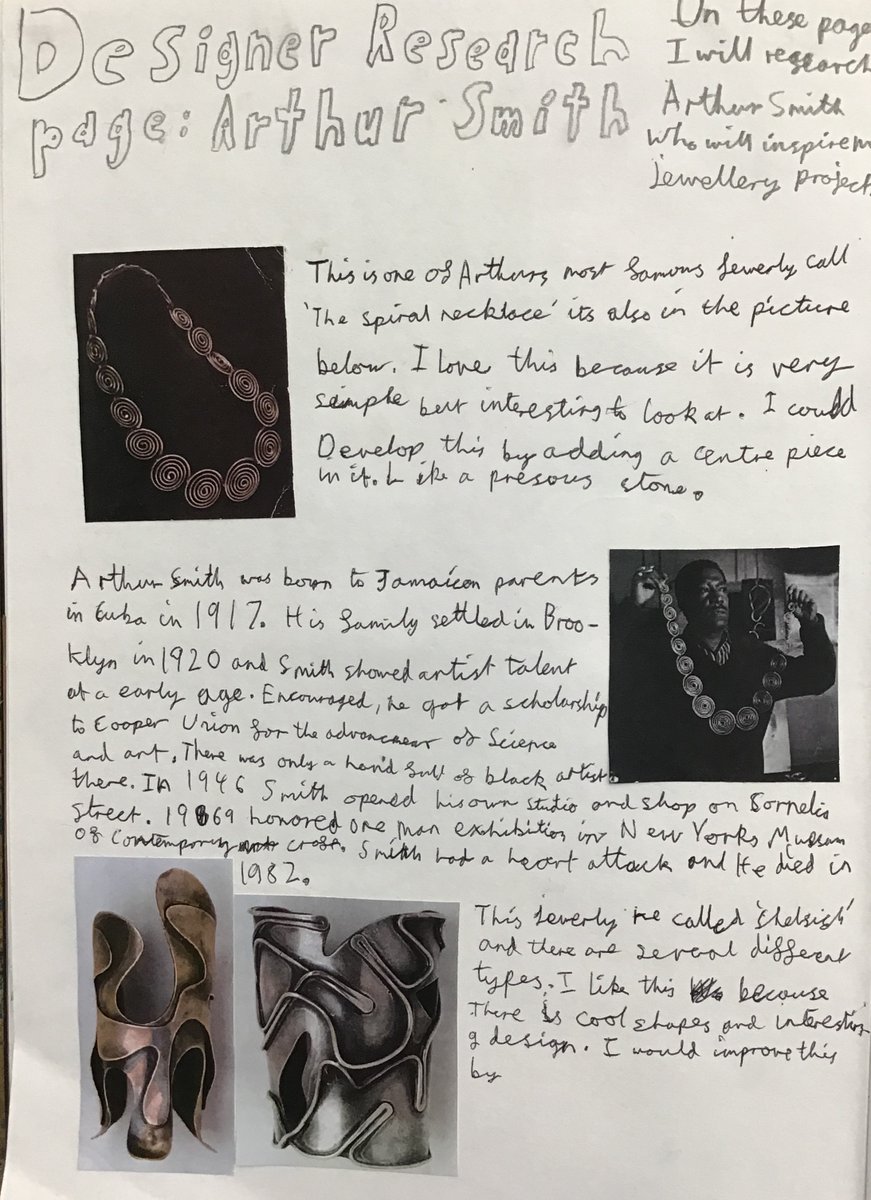 Designer Research
page: Arthur Smith
On these page
I will research
Arthur Smith
who will inspire m
jewellery project
This is one of Arthurs most famous Jewerly call
'The spiral necklace' its also in the picture
below. I love this because it is very
simple but interesting to look at. I could
Develop this by adding a centre piece
in it. Like a presous stone.
Arthur Smith was born to Jamaican parents
in Cuba in 1917. His family settled in Broo-
klyn in 1920 and Smith showed artist talent
at a early age. Encouraged, he got a scholarship
to Cooper Union for the advancment of Science
and art. There was only a hand full of black artist
there. In 1946 Smith opened his own studio and shop on Cornelia
Street. 1969 honored one man exhibition in New Yorks Museum
of Contemporary craft. Smith had a heart attack and He died in
1982.
This Jewerly he called
and there are several different
types. I like this because
There is cool shapes and interestin
g design. I would improve this
by